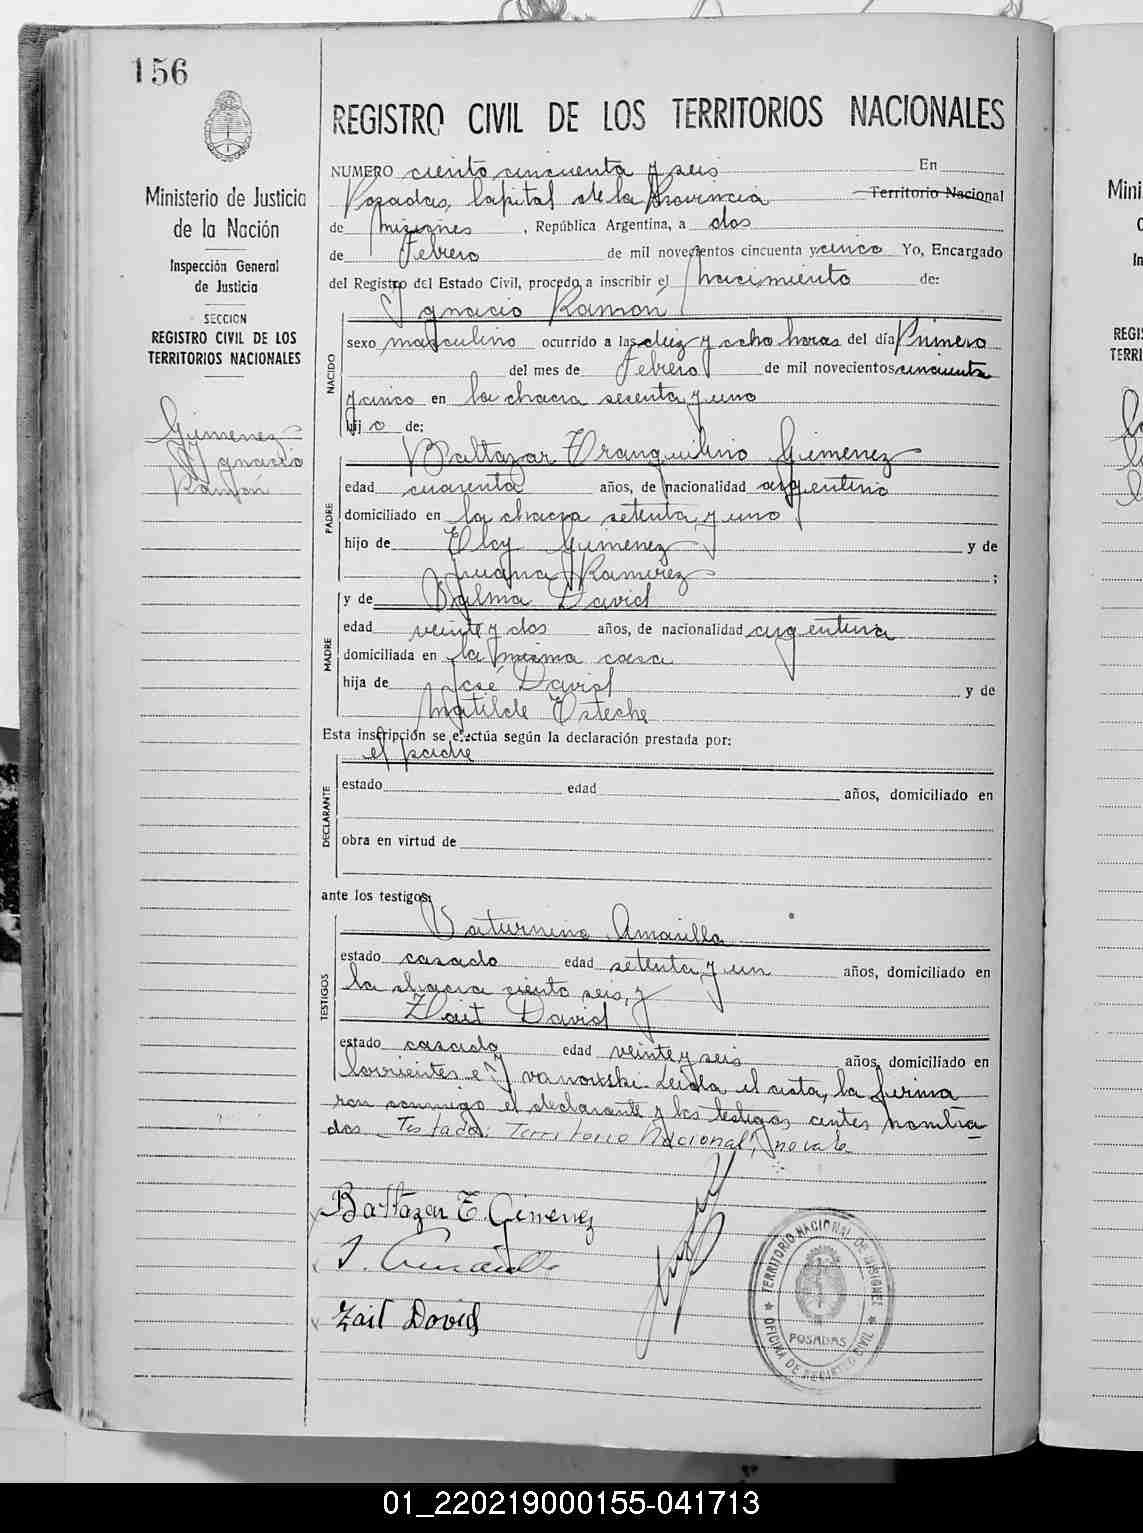 156
Ministerio de Justicia
de la Nación
Inspección General
de Justicia
SECCION
REGISTRO CIVIL DE LOS
TERRITORIOS NACIONALES
Gimenez
Ignacio
Ramón
REGISTRO CIVIL DE LOS TERRITORIOS NACIONALES
NUMERO ciento cincuenta y seis En
Posadas, Capital de la Provincia Territorio Nacional
de Misiones, República Argentina, a dos
de Febrero de mil novecientos cincuenta y cinco Yo, Encargado
del Registro del Estado Civil, procedo a inscribir el nacimiento de:
Ignacio Ramón
NACIDO
sexo masculino ocurrido a las diez y ocho horas del día Primero
del mes de Febrero de mil novecientos cincuenta
y cinco en la chacra sesenta y uno
hijo de:
PADRE
Baltazar Tranquilino Gimenez
edad cuarenta años, de nacionalidad argentino
domiciliado en la chacra setenta y uno
hijo de Eloy Gimenez y de
Juana Ramirez;
MADRE
y de Valma David
edad veinte y dos años, de nacionalidad argentina
domiciliada en la misma casa
hija de José David y de
Matilde Esteche
Esta inscripción se efectúa según la declaración prestada por:
el padre
DECLARANTE
estado edad años, domiciliado en
obra en virtud de
ante los testigos:
TESTIGOS
Saturnino Amarilla
estado casado edad setenta y un años, domiciliado en
la chacra ciento seis, y
Zait David
estado casado edad veinte y seis años, domiciliado en
Corrientes e Ivanowski. Leida el acta, la firma
ron conmigo el declarante y los testigos antes nombra
dos. Testado: Territorio Nacional, no vale
Baltazar T. Gimenez
S. Amarilla
Zait David
TERRITORIO NACIONAL DE MISIONES
POSADAS
OFICINA DE REGISTRO CIVIL
Mini
REGIS
TERRI
01_220219000155-041713